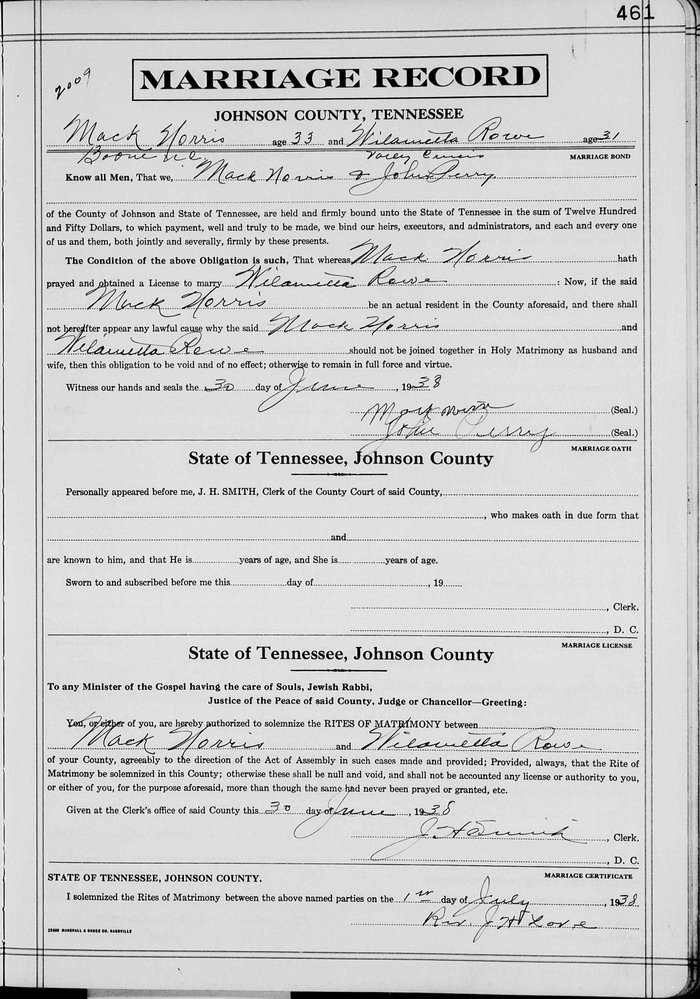 461
2009
MARRIAGE RECORD
JOHNSON COUNTY, TENNESSEE
Mack Norris age 33 and Wilametta Rowe age 31
Boone N.C.
MARRIAGE BOND
Know all Men, That we, Mack Norris & John Perry
of the County of Johnson and State of Tennessee, are held and firmly bound unto the State of Tennessee in the sum of Twelve Hundred
and Fifty Dollars, to which payment, well and truly to be made, we bind our heirs, executors, and administrators, and each and every one
of us and them, both jointly and severally, firmly by these presents.
The Condition of the above Obligation is such, That whereas Mack Norris hath
prayed and obtained a License to marry Wilametta Rowe : Now, if the said
Mack Norris be an actual resident in the County aforesaid, and there shall
not hereafter appear any lawful cause why the said Mack Norris and
Wilametta Rowe should not be joined together in Holy Matrimony as husband and
wife, then this obligation to be void and of no effect; otherwise to remain in full force and virtue.
Witness our hands and seals the 30 day of June , 1938
Mack Norris (Seal.)
John Perry (Seal.)
MARRIAGE OATH
State of Tennessee, Johnson County
Personally appeared before me, J. H. SMITH, Clerk of the County Court of said County,
, who makes oath in due form that
and
are known to him, and that He is years of age, and She is years of age.
Sworn to and subscribed before me this day of , 19
, Clerk.
, D. C.
MARRIAGE LICENSE
State of Tennessee, Johnson County
To any Minister of the Gospel having the care of Souls, Jewish Rabbi,
Justice of the Peace of said County, Judge or Chancellor—Greeting:
You, or either of you, are hereby authorized to solemnize the RITES OF MATRIMONY between
Mack Norris and Wilametta Rowe
of your County, agreeably to the direction of the Act of Assembly in such cases made and provided; Provided, always, that the Rite of
Matrimony be solemnized in this County; otherwise these shall be null and void, and shall not be accounted any license or authority to you,
or either of you, for the purpose aforesaid, more than though the same had never been prayed or granted, etc.
Given at the Clerk's office of said County this 30 day of June , 1938
J H Smith , Clerk.
, D. C.
MARRIAGE CERTIFICATE
STATE OF TENNESSEE, JOHNSON COUNTY.
I solemnized the Rites of Matrimony between the above named parties on the 1st day of July , 1938
Rev. J H Love
MARSHALL & BRUCE CO. NASHVILLE